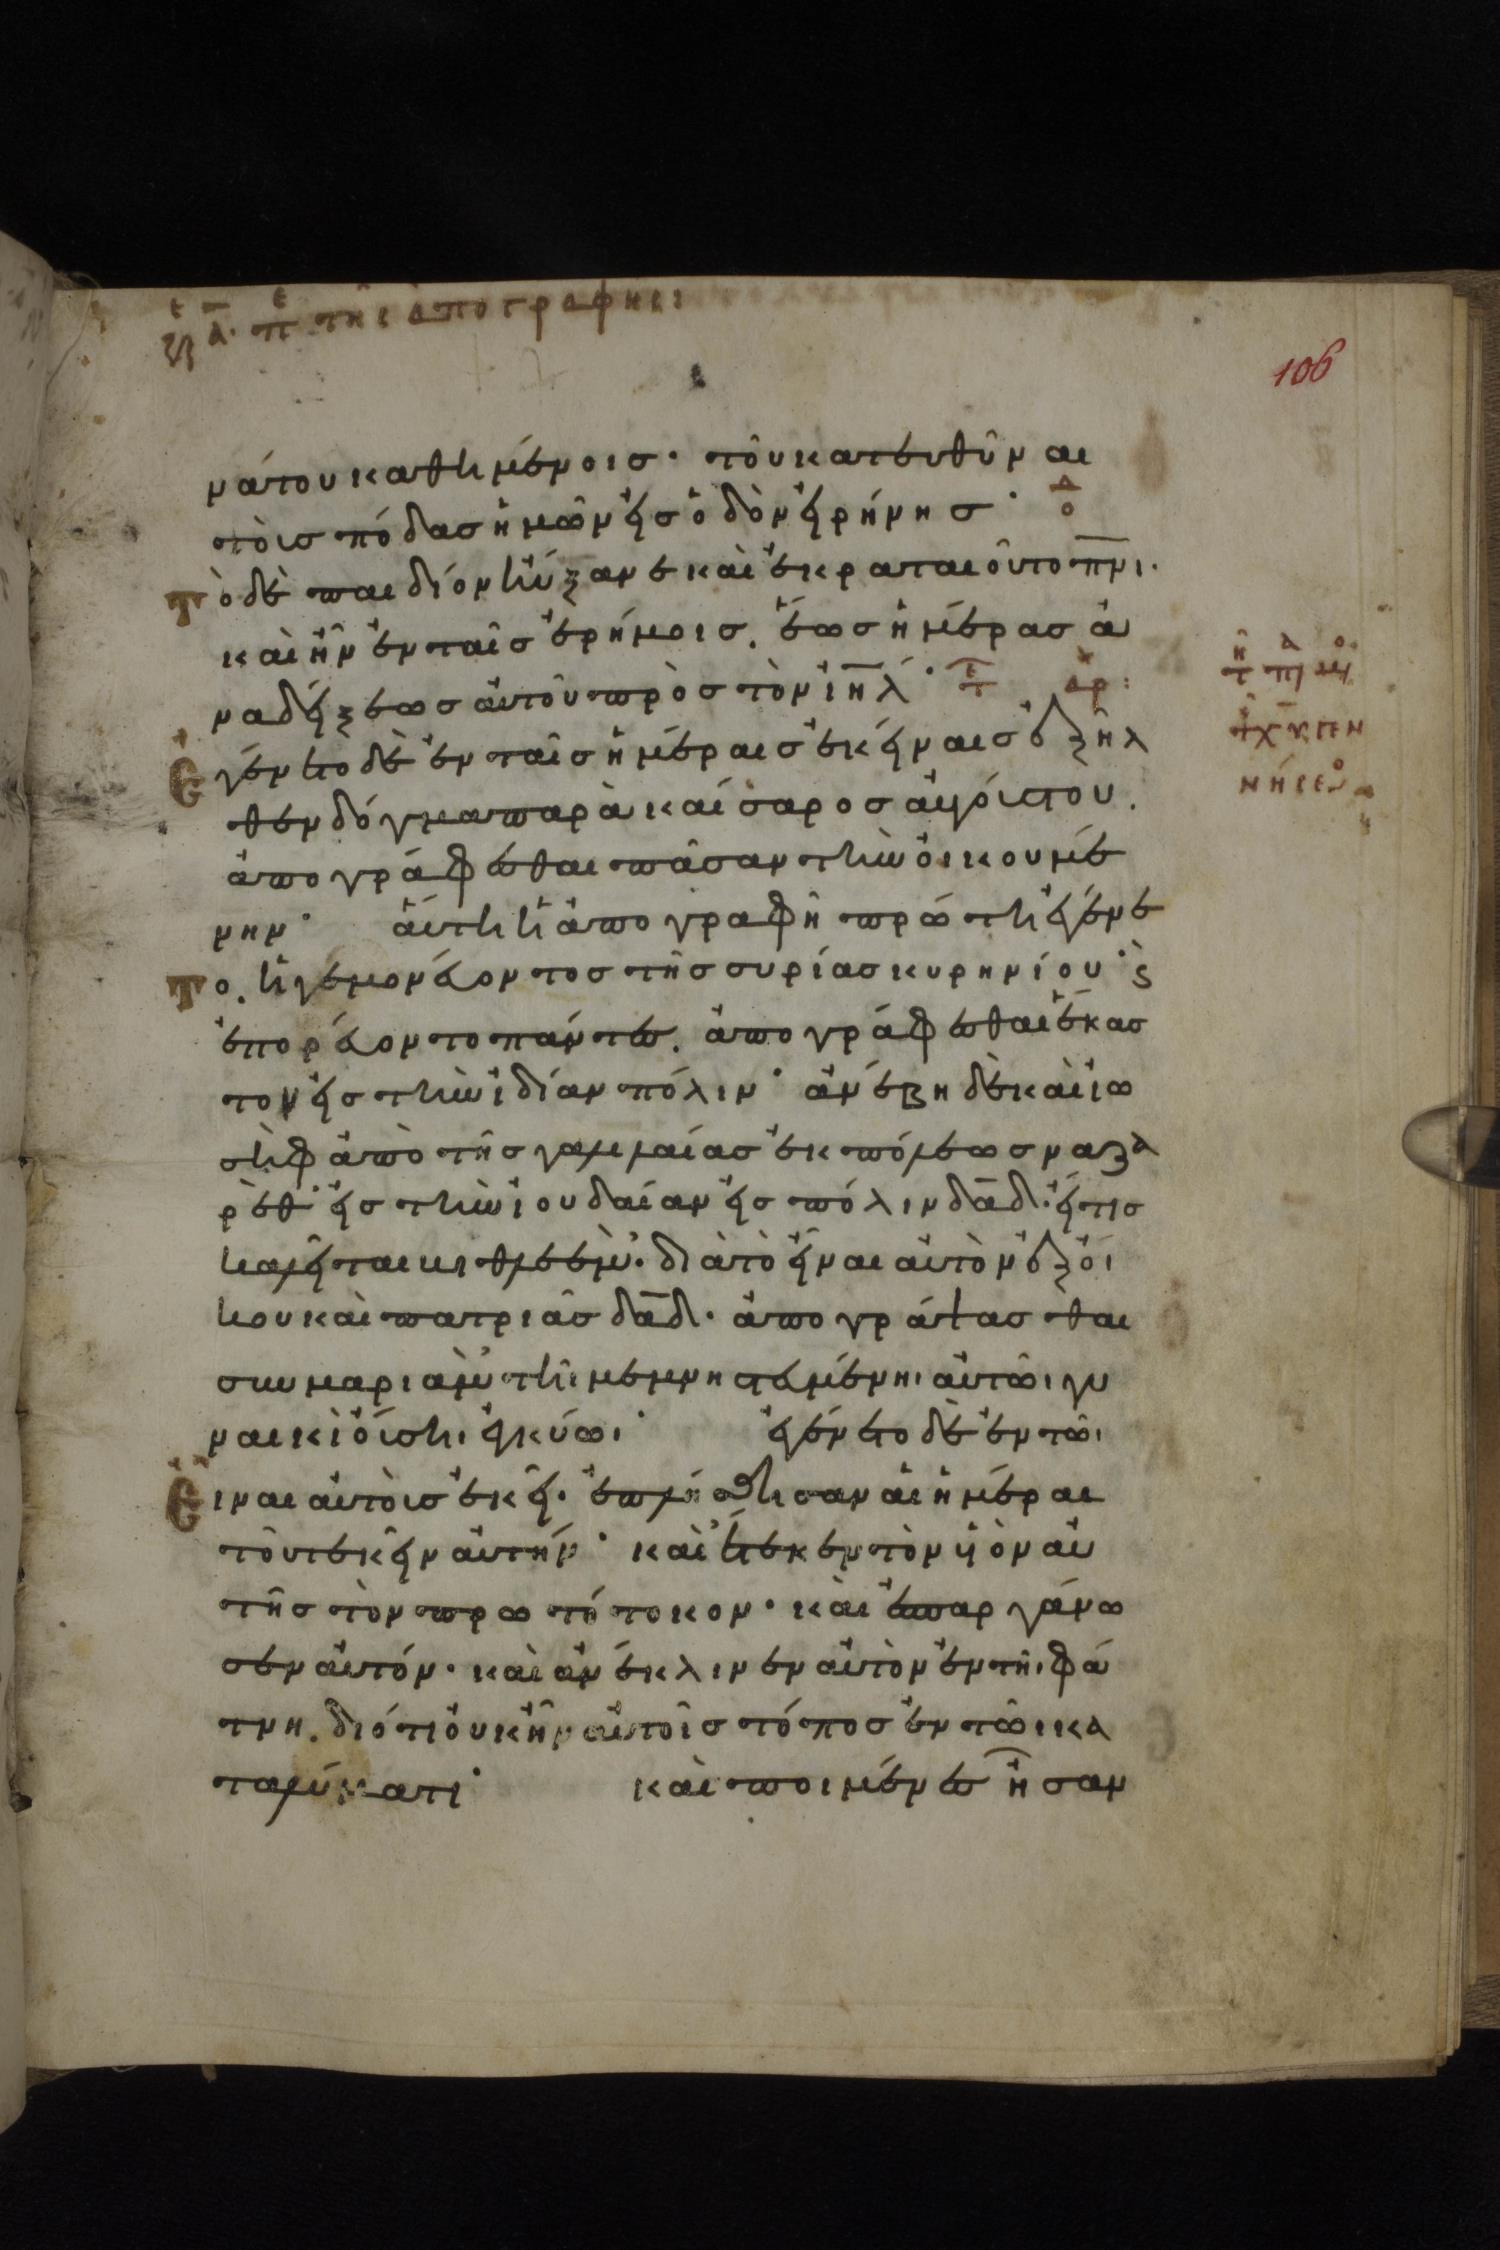 τῆς ἀπογραφῆς:
106
νάτου καθημένοις· τοῦ κατευθῦναι
τοὺς πόδας ἡμῶν εἰς ὁδὸν εἰρήνης·
Τὸ δὲ παιδίον ηὔξανε καὶ ἐκραταιοῦτο πνι.
καὶ ἦν ἐν ταῖς ἐρήμοις. ἕως ἡμέρας ἀ
ναδείξεως αὐτοῦ πρὸς τὸν ιηλ· τε αρ:
Ἐγένετο δὲ ἐν ταῖς ἡμέραις ἐκείναις ἐξῆλ
θεν δόγμα παρὰ καίσαρος αὐγούστου.
ἀπογράφεσθαι πᾶσαν τὴν οἰκουμέ
νην· αὕτη ἡ ἀπογραφὴ πρώτη ἐγένε
Το. ἡγεμονεύοντος τῆς συρίας κυρηνίου· ϛ
ἐπορεύοντο πάντες. ἀπογράφεσθαι ἕκασ
τον εἰς τὴν ἰδίαν πόλιν· ἀνέβη δὲ καὶ ἰω
σὴφ ἀπὸ τῆς γαλιλαίας ἐκ πόλεως ναζα
ρὲθ· εἰς τὴν ἰουδαίαν εἰς πόλιν δαδ· ἥτις
καλεῖται βηθλεέμ· διὰ τὸ εἶναι αὐτὸν ἐξ οἴ
κου καὶ πατριᾶς δαδ· ἀπογράψασθαι
σὺν μαριὰμ τῆι μεμνηστευμένηι αὐτῶι γυ
ναικὶ οὔσηι ἐγκύωι· ἐγένετο δὲ ἐν τῶι
Εἶναι αὐτοὺς ἐκεῖ. ἐπλήσθησαν αἱ ἡμέραι
τοῦ τεκεῖν αὐτήν· καὶ ἔτεκεν τὸν υἱὸν αὐ
τῆς τὸν πρωτότοκον· καὶ ἐσπαργάνω
σεν αὐτόν· καὶ ἀνέκλινεν αὐτὸν ἐν τῆι φά
τνη. διότι οὐκ ἦν αὐτοῖς τόπος ἐν τῶι κα
ταλύματι· καὶ ποιμένες ἦσαν